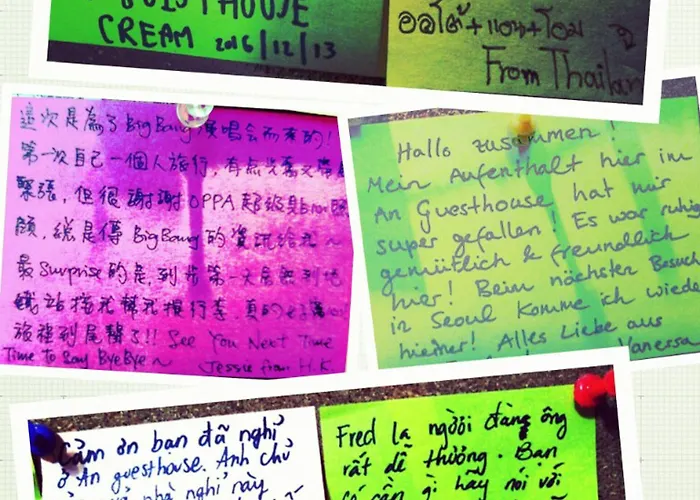 GUESTHOUSE
CREAM 2016/12/13
From Thailan
這次是為了BigBang演唱会而來的!
第一次自己一個人旅行, 有点兴奮又帶点
緊張, 但很謝謝OPPA 超級貼心照
顧, 總是傳BigBang的資訊給我~
最Surprise的是, 到步第一天居然到地
鐵站接我幫我搬行李, 真的好
旅程到尾聲了!! See You Next Time
Time to Say ByeBye~ Jessie from H.K.
Hallo zusammen!
Mein Aufenthalt hier im
An Guesthouse hat mir
super gefallen! Es war ruhig
gemütlich & freundlich
hier! Beim nächsten Besuch
in Seoul komme ich wiede
hierher! Alles Liebe aus
Vanessa
Cảm ơn bạn đã nghỉ
ở An guesthouse. Anh chủ
nhà nghỉ này
Fred là người đàng ông
rất dễ thương. Bạn
có cần gì hãy nói với